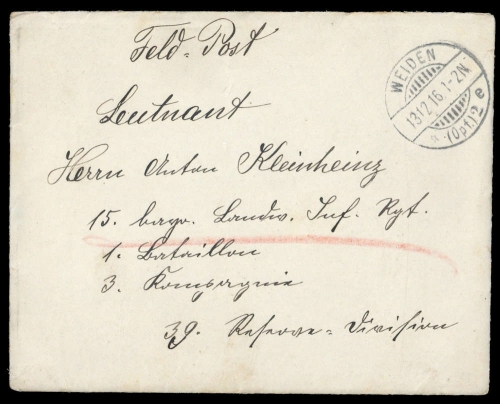 Feld-Post
WEIDEN
13 12 16. 1-2N
* (Opf.) 2 e
Leutnant
Herrn Anton Kleinheinz
15. bayr. Landw. Inf. Rgt.
1. Bataillon
3. Kompagnie
39. Reserve-Division